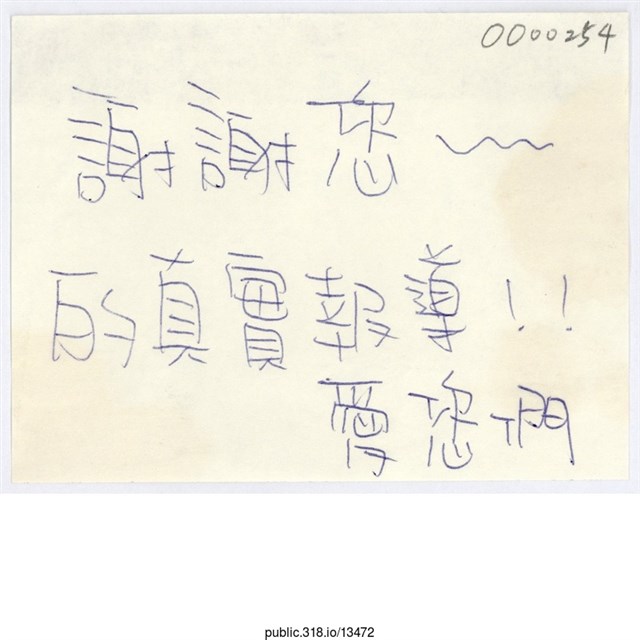 0000254
謝謝您~
的真實報導!!
愛您們
public.318.io/13472